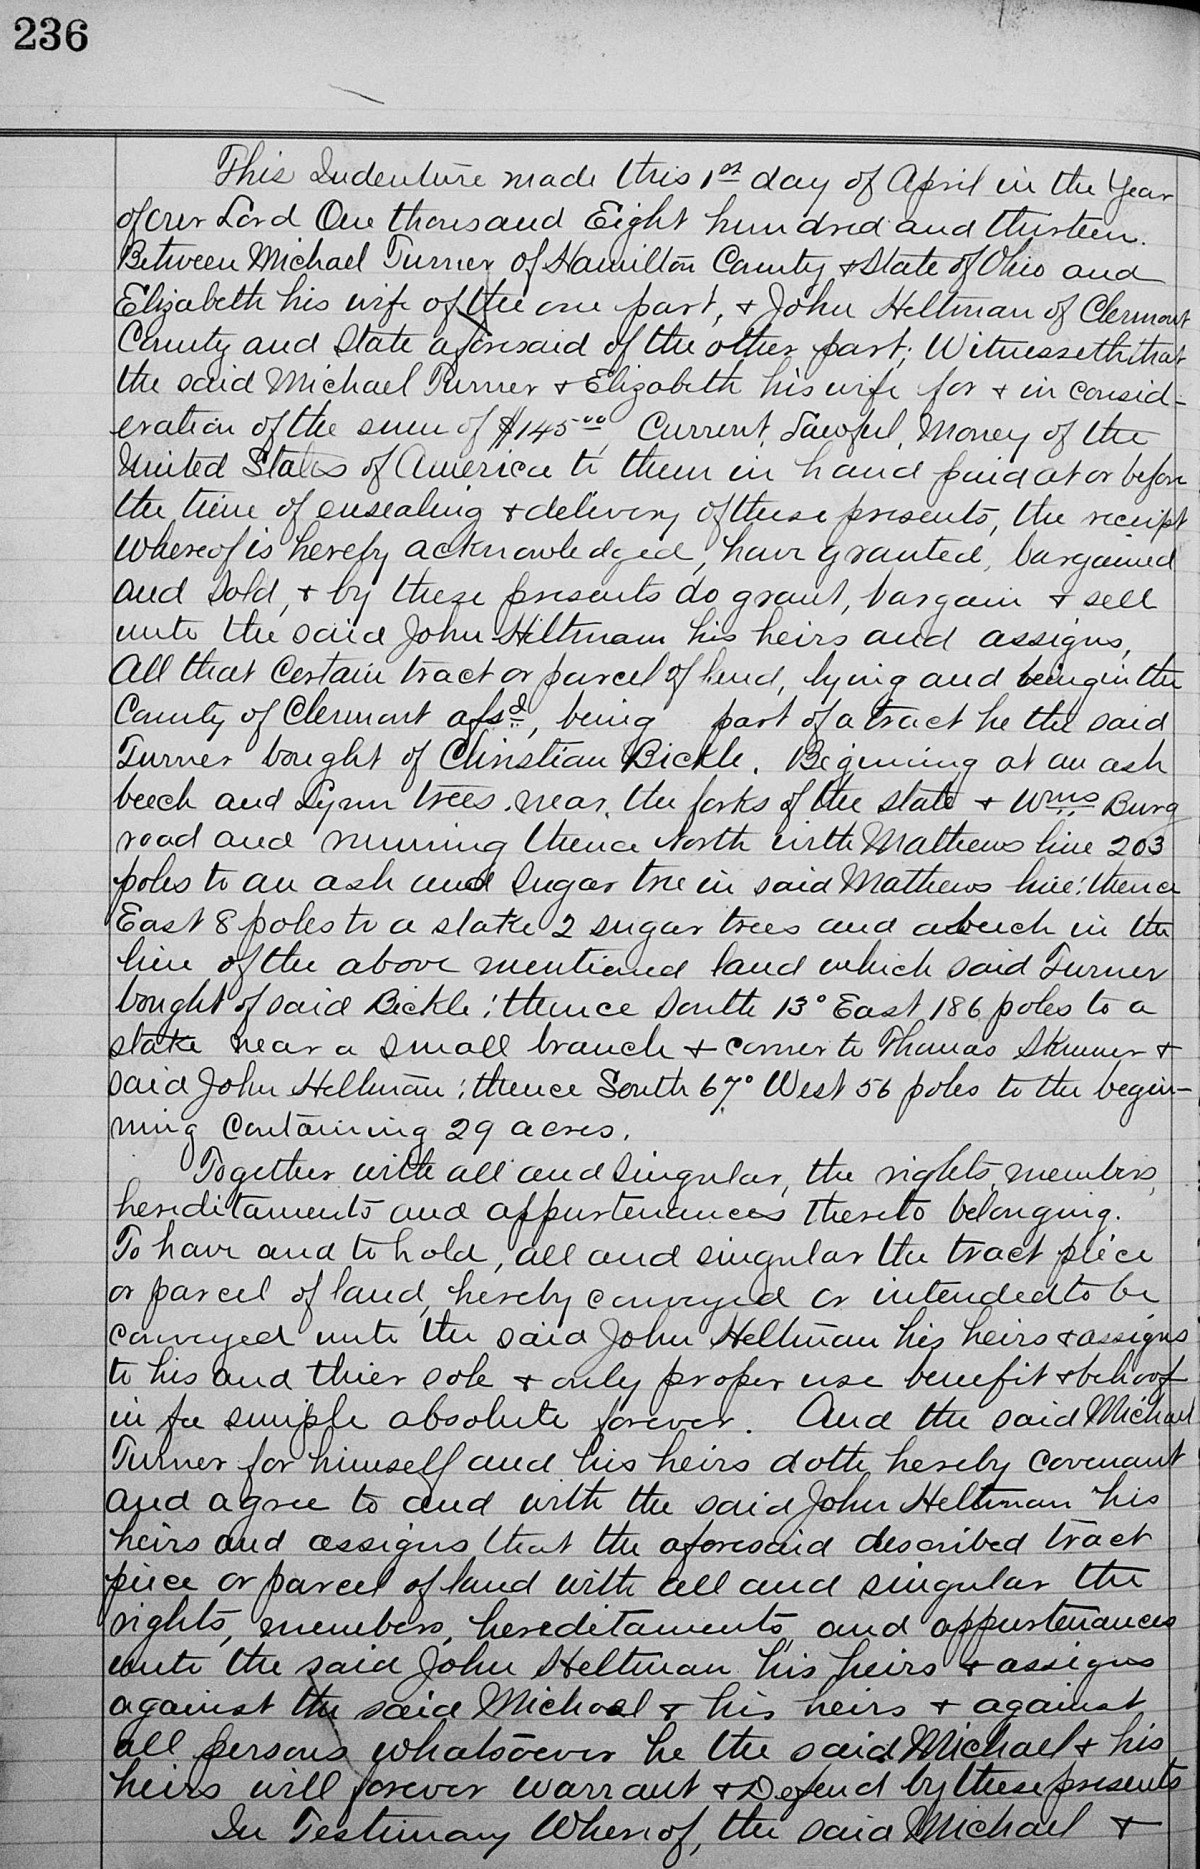 236
This Indenture made this 1st day of April in the Year
of our Lord One thousand Eight hundred and thirteen.
Between Michael Turner of Hamilton County & State of Ohio and
Elizabeth his wife of the one part, & John Heltman of Clermont
County and State aforesaid of the other part; Witnesseth that
the said Michael Turner & Elizabeth his wife for & in consid-
eration of the sum of $145.00, Current, Lawful, Money of the
United States of America to them in hand paid at or before
the time of ensealing & delivery of these presents, the receipt
whereof is hereby acknowledged, have granted, bargained
and Sold, & by these presents do grant, bargain & sell
unto the said John Hiltmam his heirs and assigns,
All that certain tract or parcel of land, lying and being in the
County of Clermont afsd, being part of a tract he the said
Turner bought of Christian Bickle. Begining at an ash
beech and Lynn trees near the forks of the state & Wms Burg
road and running thence North with Mathews line 203
poles to an ash and Sugar tree in said Mathews line: thence
East 8 poles to a stake 2 sugar trees and a beech in the
line of the above mentioned land which said Turner
bought of said Bickle: thence South 13° East 186 poles to a
stake near a small branch & corner to Thomas Skinner &
said John Heltman: thence South 67° West 56 poles to the begin-
ning Containing 29 acres.
Together with all and Singular, the rights, members,
hereditaments and appurtenances thereto belonging.
To have and to hold, all and singular the tract piece
or parcel of land, hereby conveyed or intended to be
conveyed unto the said John Heltman his heirs & assigns
to his and thier sole & only proper use benefit & behoof
in fee simple absolute forever. And the said Michael
Turner for himself and his heirs doth hereby covenant
and agree to and with the said John Heltman his
heirs and assigns that the aforesaid described tract
piece or parcel of land with all and singular the
rights, members, hereditaments, and appurtenances
unto the said John Heltman his heirs & assigns
against the said Michael & his heirs & against
all persons whatsoever he the said Michael & his
heirs will forever warrant & Defend by these presents
In Testimony Whereof, the said Michael &